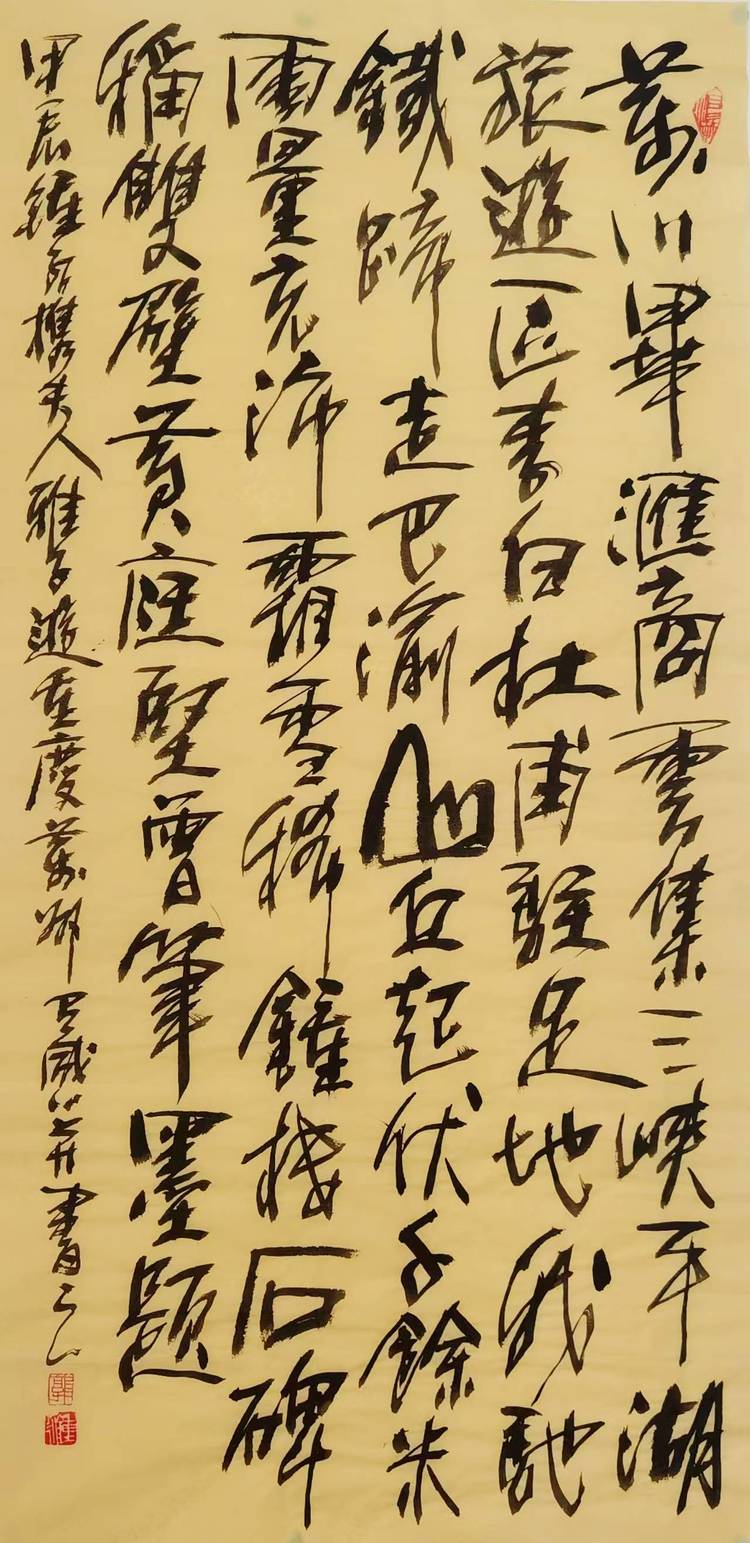 萬川畢滙商雲集三峽平湖
旅遊區李白杜甫駐足地我馳
鐵蹄走巴渝山丘起伏千餘米
雨量充沛霜雪稀鐘樓石碑
稱雙壁黃庭堅曾筆墨題
甲辰攜夫人雅遊重慶萬州并書